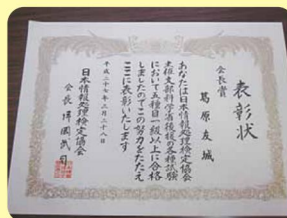 表彰状
会長賞
葛原友城
あなたは日本情報処理検定協会
主催文部科学省後援の各種試験
において五種目一級以上に合格
しましたのでこの努力をたたえ
ここに表彰いたします
平成二十七年三月二十八日
日本情報処理検定協会
会長